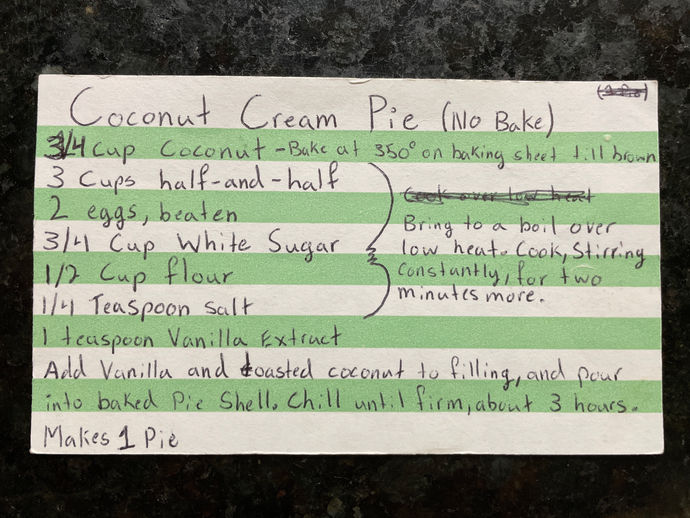 Coconut Cream Pie (No Bake)
3/4 Cup Coconut - Bake at 350° on baking sheet till brown
3 Cups half-and-half
2 eggs, beaten
3/4 Cup White Sugar
1/2 Cup flour
1/4 Teaspoon salt
Cook over low heat
Bring to a boil over
low heat. Cook, Stirring
constantly, for two
minutes more.
1 teaspoon Vanilla Extract
Add Vanilla and toasted coconut to filling, and pour
into baked Pie Shell. Chill until firm, about 3 hours.
Makes 1 Pie